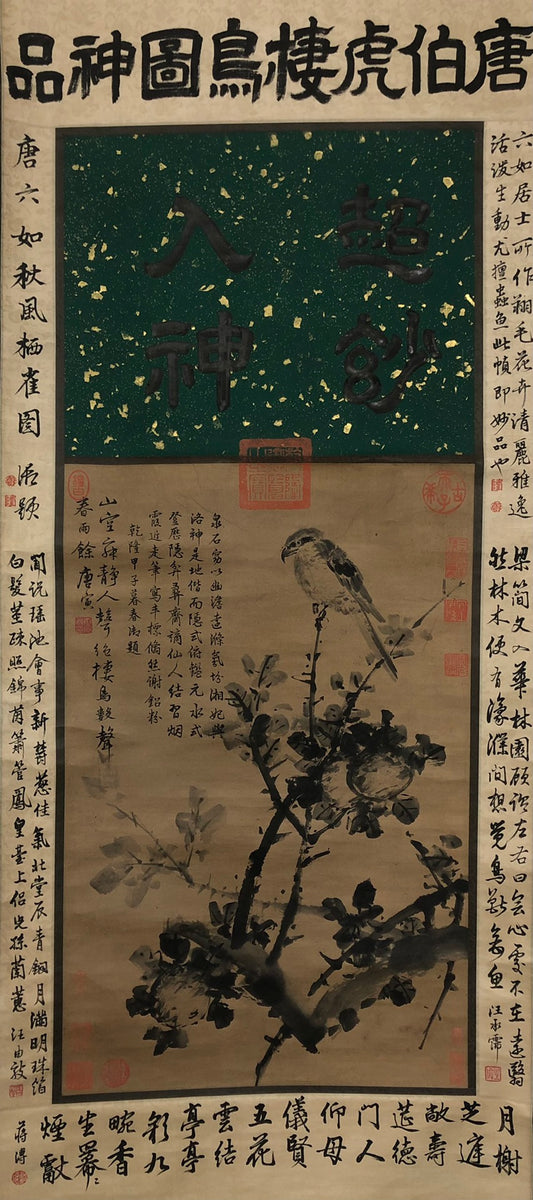 唐伯虎棲鳥圖神品
超妙
入神
六如居士所作翔毛花卉清麗雅逸
活潑生動尤擅蟲魚此幀即妙品也
梁簡文入華林園顧謂左右曰会心處不在遠翳
然林木便有濠濮間想覺鳥獸禽魚
汪承霈
唐六如秋風栖雀圖
聞說瑤池會事新 蔥佳氣北堂辰青銅月滿明珠箔
白髮 照錦茵簫管鳳皇臺上侶 孫蘭蕙 汪由敦
泉石 以幽 遠滌氣 湘妃與
洛神是地偕而隱式俯 元水式
登歷隱 齋謫仙人結習烟
霞近走筆寫丰標倘然謝鉛粉
乾隆甲子暮春御題
山空寂靜人 棲鳥數聲
春雨餘 唐寅
月榭
芝庭
敞壽
萱德
門人
仰母
儀賢
五花
雲結
亭亭
彩九
畹香
生冪冪
煙獻
蔣溥